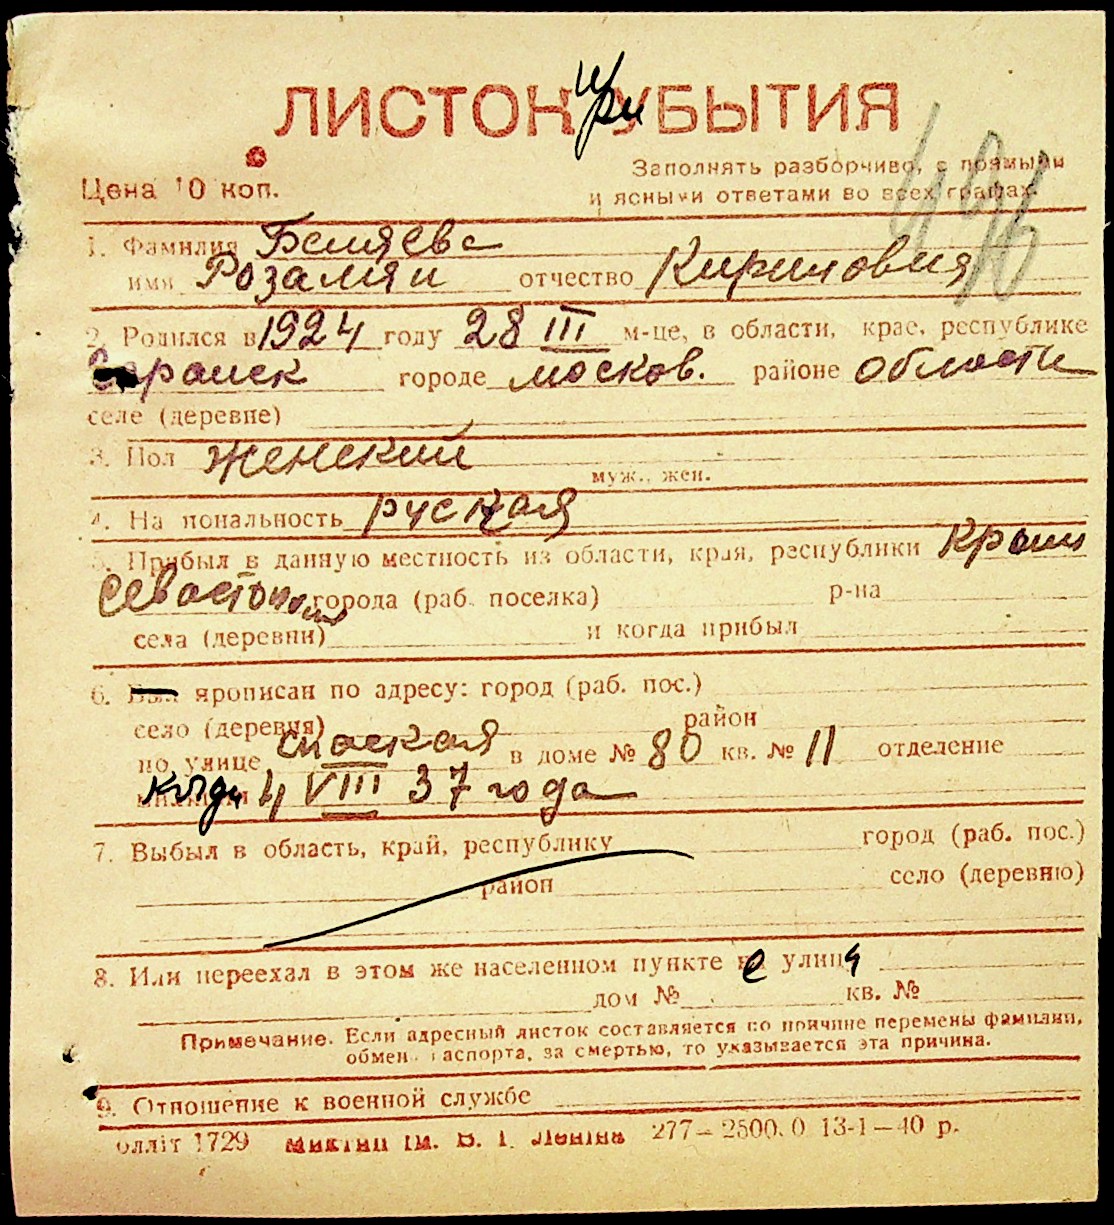 ЛИСТОК при УБЫТИЯ
Цена 10 коп.
Заполнять разборчиво, с прямыми
и ясными ответами во всех графах
1. Фамилия Беляева
имя Розалия отчество Кириловна
2. Родился в 1924 году 28 III м-це, в области, крае, республике
городе москов. районе области
селе (деревне)
3. Пол женский
муж., жен.
4. Национальность руская
5. Прибыл в данную местность из области, края, республики Крым
Севастополя города (раб. поселка) р-на
села (деревни) и когда прибыл
6. Был прописан по адресу: город (раб. пос.)
село (деревня) район
по улице спаская в доме № 80 кв. № 11 отделение
милиции когда 4 VIII 37 года
7. Выбыл в область, край, республику город (раб. пос.)
район село (деревню)
8. Или переехал в этом же населенном пункте с улицы
дом № кв. №
Примечание. Если адресный листок составляется по причине перемены фамилии,
обмен паспорта, за смертью, то указывается эта причина.
9. Отношение к военной службе
олліт 1729 ім. В. І. Леніна 277—2500.0 13-1—40 р.